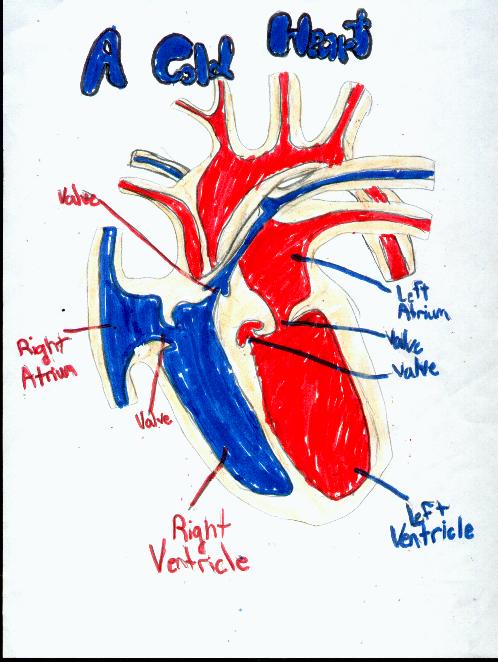 A Cold Heart
Valve
Left
Atrium
Right
Atrium
Valve
Valve
Valve
Left
Ventricle
Right
Ventricle